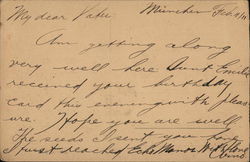 My dear München Feb
Am getting along
very well here Aunt Emilie
received your birthday
card this evening with pleas
ure. Hope you are well
The seeds I sent you have
I trust reached